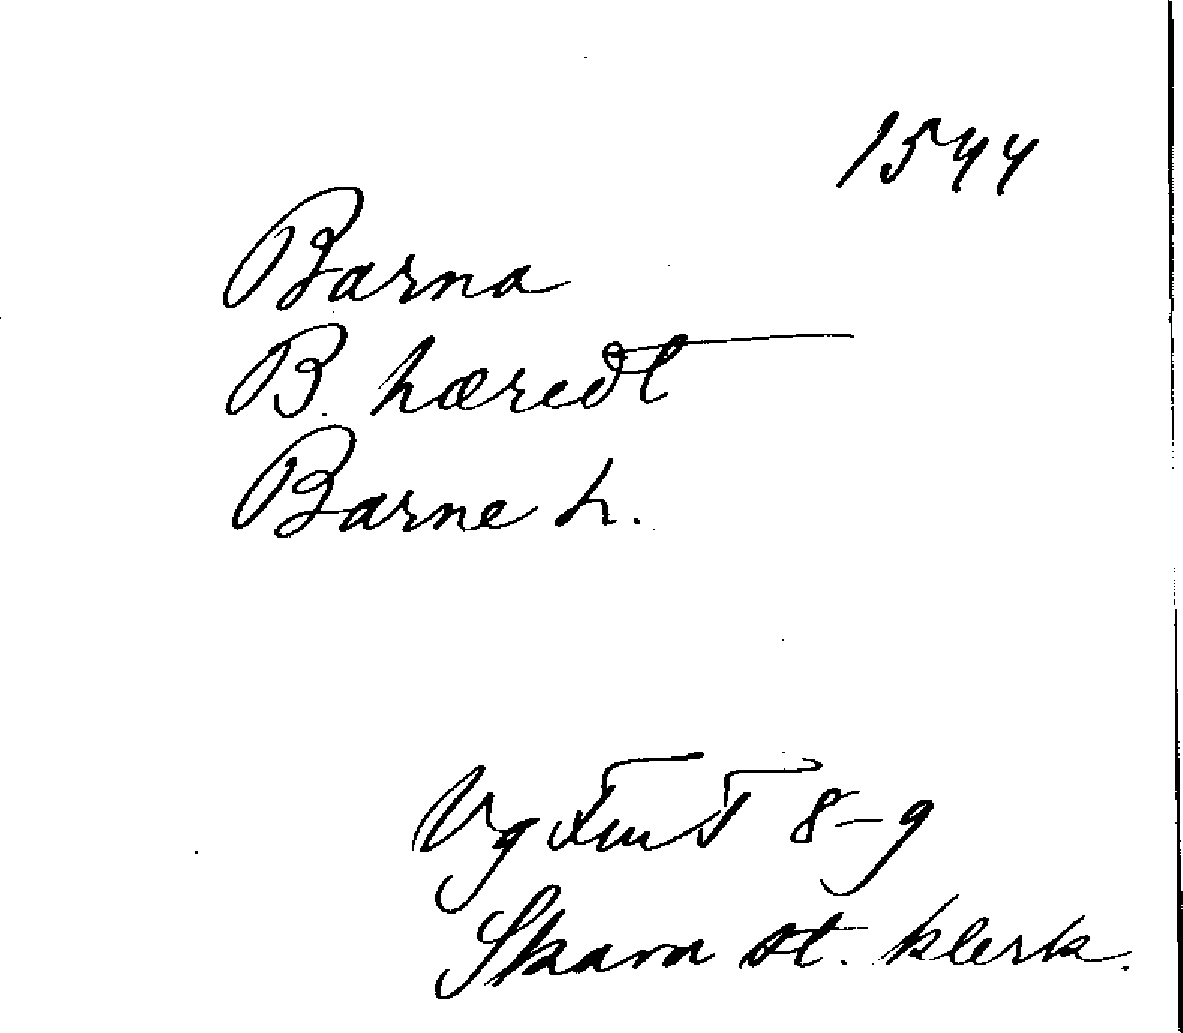 1544
Barna
B. hæredt
Barne h.
Vg FmT 8-9
Skara st. klerk.